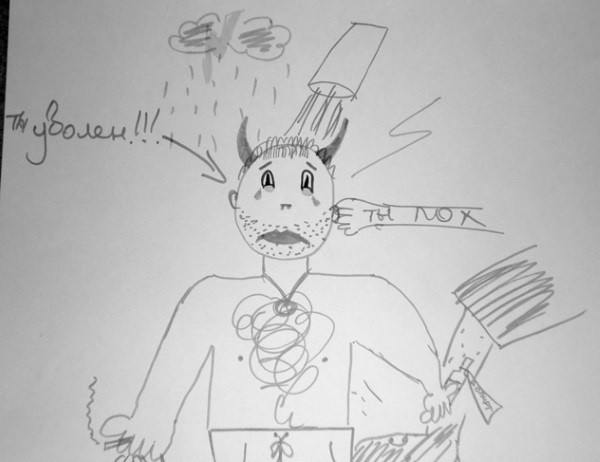 ты уволен!!!
ты лох